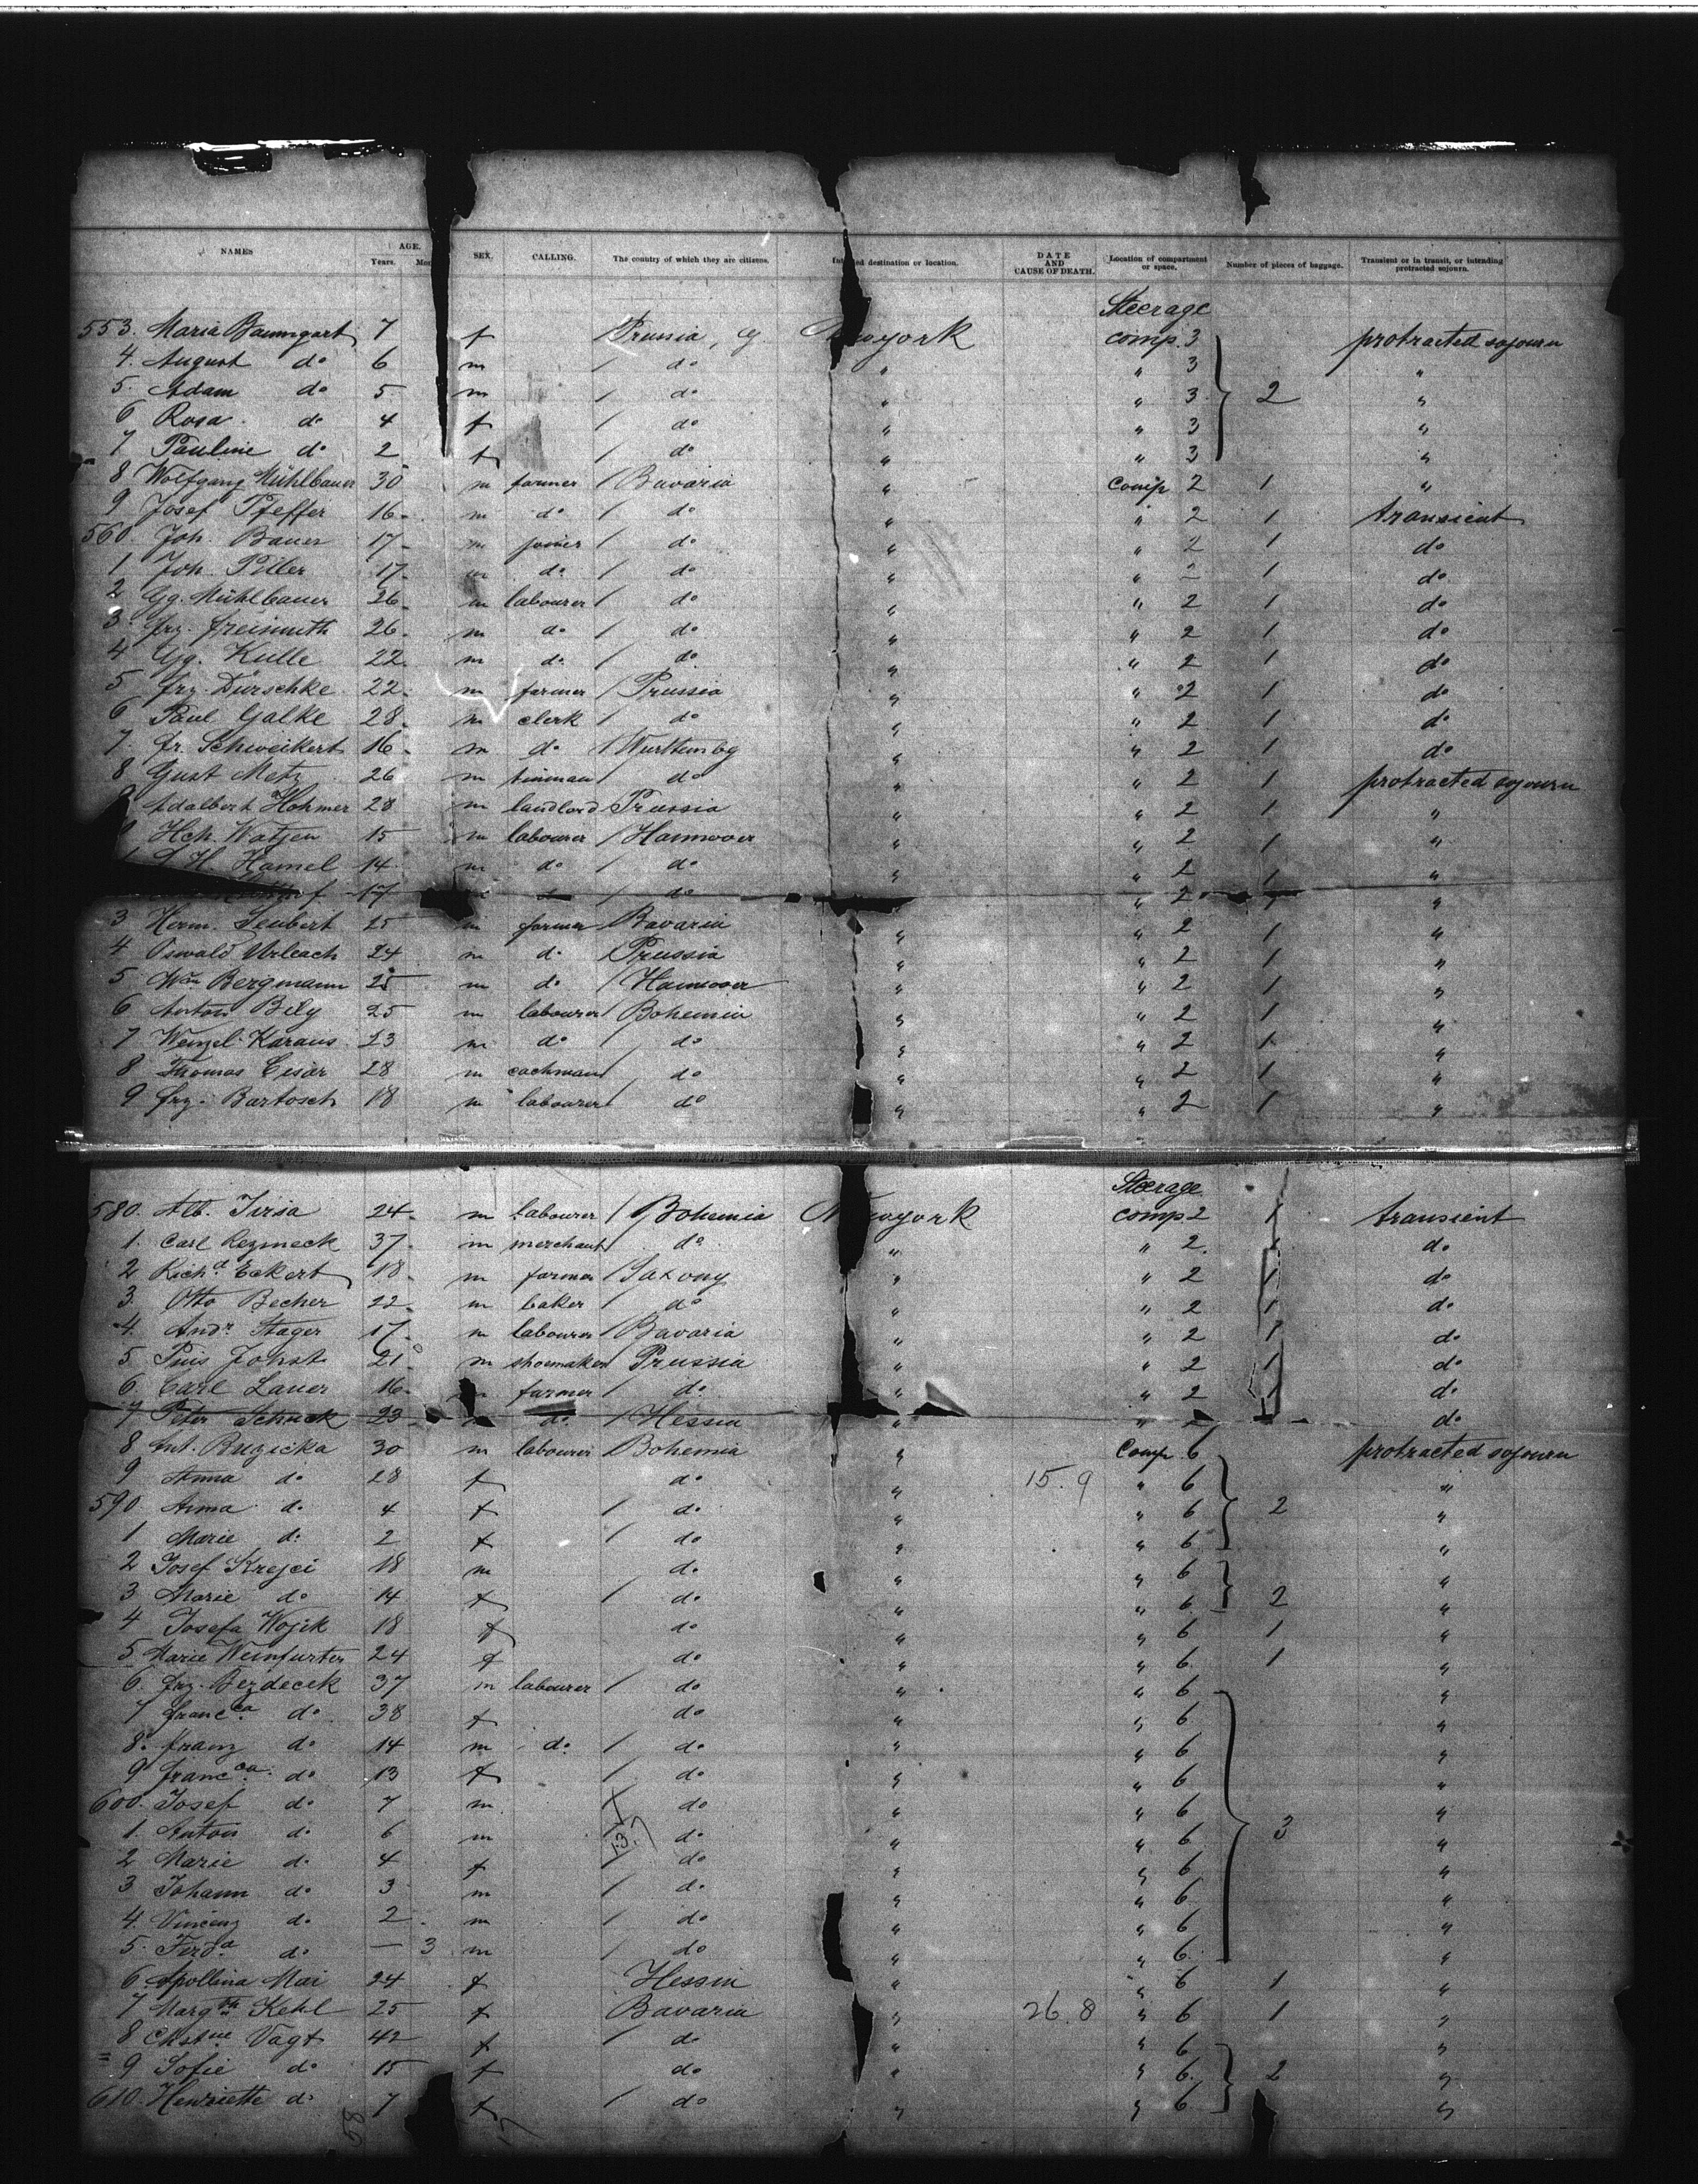 NAMES AGE. Years. Mon SEX. CALLING. The country of which they are citizens. Int ed destination or location. DATE AND CAUSE OF DEATH. Location of compartment or space. Number of pieces of baggage. Transient or in transit, or intending protracted sojourn.
Steerage
553. Maria Baumgart 7 f Prussia, Newyork comp. 3 protracted sojourn
4. August do 6 m / do " " 3 "
5. Adam do 5 m / do " " 3 2 "
6 Rosa do 4 f / do " " 3 "
7 Pauline do 2 f / do " " 3 "
8 Wolfgang Mühlbauer 30 m farmer / Bavaria " Comp 2 1 "
9 Josef Pfeffer 16 m do / do " " 2 1 transient
560. Joh. Bauer 17 m joiner / do " " 2 1 do
1 Joh. Piller 17 m do / do " " 2 1 do
2 Gg. Mühlbauer 26 m labourer / do " " 2 1 do
3 frz. Freimuth 26 m do / do " " 2 1 do
4 Gg. Kulle 22 m do / do " " 2 1 do
5 frz. Dürschke 22 m farmer / Prussia " " 2 1 do
6 Paul Galke 28 m clerk / do " " 2 1 do
7. fr. Schweikert 16 m do / Wurttembg " " 2 1 do
8 Gust Metz 26 m tinman / do " " 2 1 protracted sojourn
9 Adalbert Hohmer 28 m landlord Prussia " " 2 1 "
Hch. Watjen 15 m labourer / Hannover " " 2 1 "
H. Hamel 14 m do / do " " 2 1 "
17 / do " " 2 1 "
3 Herm. Seubert 25 m farmer Bavaria " " 2 1 "
4 Oswald Urleach 24 m do Prussia " " 2 1 "
5 Wm Bergmann 25 m do / Hannover " " 2 1 "
6 Anton Bily 25 m labourer / Bohemia " " 2 1 "
7 Wenzel Karaus 23 m do / do " " 2 1 "
8 Thomas Cisar 28 m cochman / do " " 2 1 "
9 frz. Bartosch 18 m labourer / do " " 2 1 "
Steerage
580. Alb. Jirsa 24 m labourer / Bohemia Newyork comp 2 1 transient
1. Carl Rezmeck 37 m merchant / do " " 2. 1 do
2 Richd Eckert 18 m farmer / Saxony " " 2 1 do
3. Otto Becher 22 m baker / do " " 2 1 do
4. Andr Stager 17 m labourer / Bavaria " " 2 1 do
5 Pius Johst 21 m shoemaker / Prussia " " 2 1 do
6. Carl Lauer 16 m farmer / do " " 2 1 do
7 Peter Schuck 23 m do / Hessia " " 2 1 do
8 Ant. Ruzicka 30 m labourer Bohemia " Comp. 6 protracted sojourn
9 Anna do 28 f do " 15.9 " 6 "
590. Anna do 4 f / do " " 6 2 "
1 Marie do 2 f / do " " 6 "
2 Josef Krejci 18 m do " " 6 "
3 Marie do 14 f / do " " 6 2 "
4 Josefa Wojik 18 f do " " 6 1 "
5 Marie Weinfurter 24 f do " " 6 1 "
6. frz. Bezdecek 37 m labourer / do " " 6 "
7 francca do 38 f do " " 6 "
8. franz do 14 m do / do " " 6 "
9 francca do 13 f / do " " 6 "
600. Josef do 7 m / do " " 6 "
1. Anton do 6 m / do " " 6 3 "
2 Marie do 4 f / do " " 6 "
3 Johann do 3 m / do " " 6 "
4. Vincenz do 2 m / do " " 6 "
5. Ferda do — 3 m / do " " 6 "
6 Apollina Mai 24 f Hessin " " 6 1 "
7 Margth Kehl 25 f Bavaria " 26.8 " 6 1 "
8 Chstne Vagt 42 f / do " " 6 "
9 Sofie do 15 f do " " 6 2 "
610. Henriette do 7 f / do " " 6 "